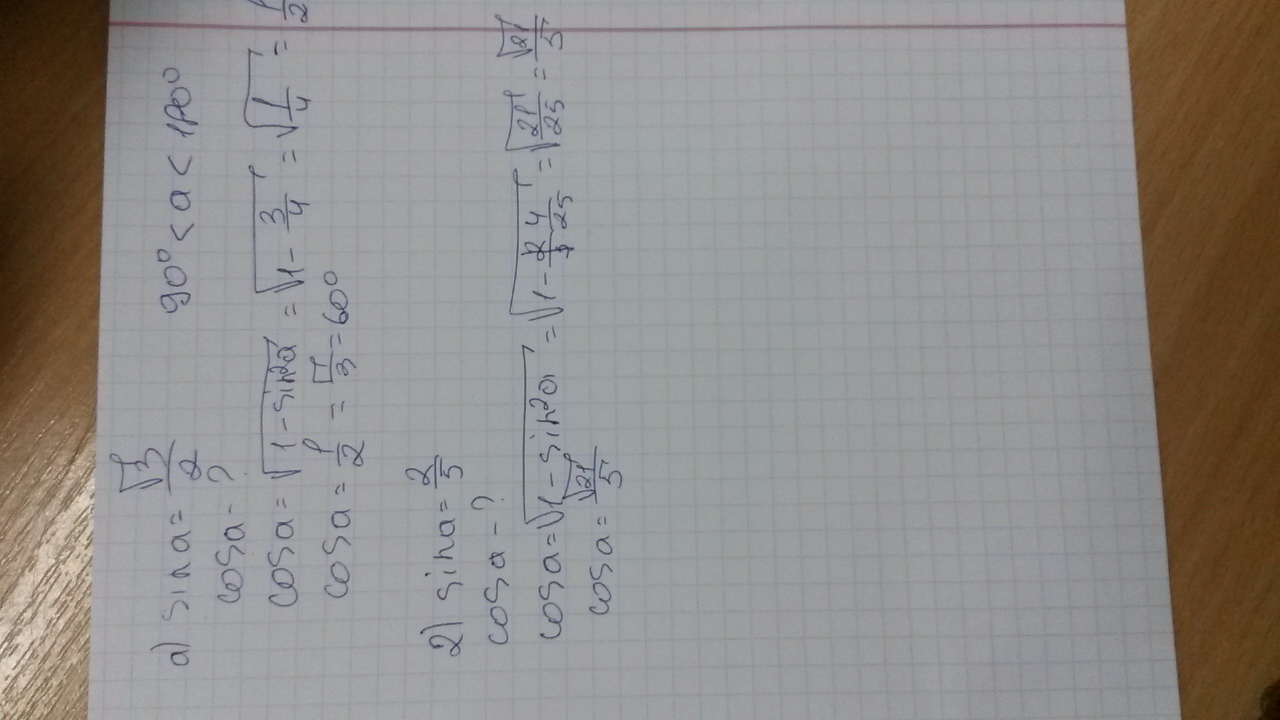 a) sin a = √3/2 90° < a < 180°
cos a - ?
cos a = √(1 - sin²a) = √(1 - 3/4) = √(1/4) = 1/2
cos a = 1/2 = π/3 = 60°
2) sin a = 2/5
cos a - ?
cos a = √(1 - sin²a) = √(1 - 4/25) = √(21/25) = √21/5
cos a = √21/5